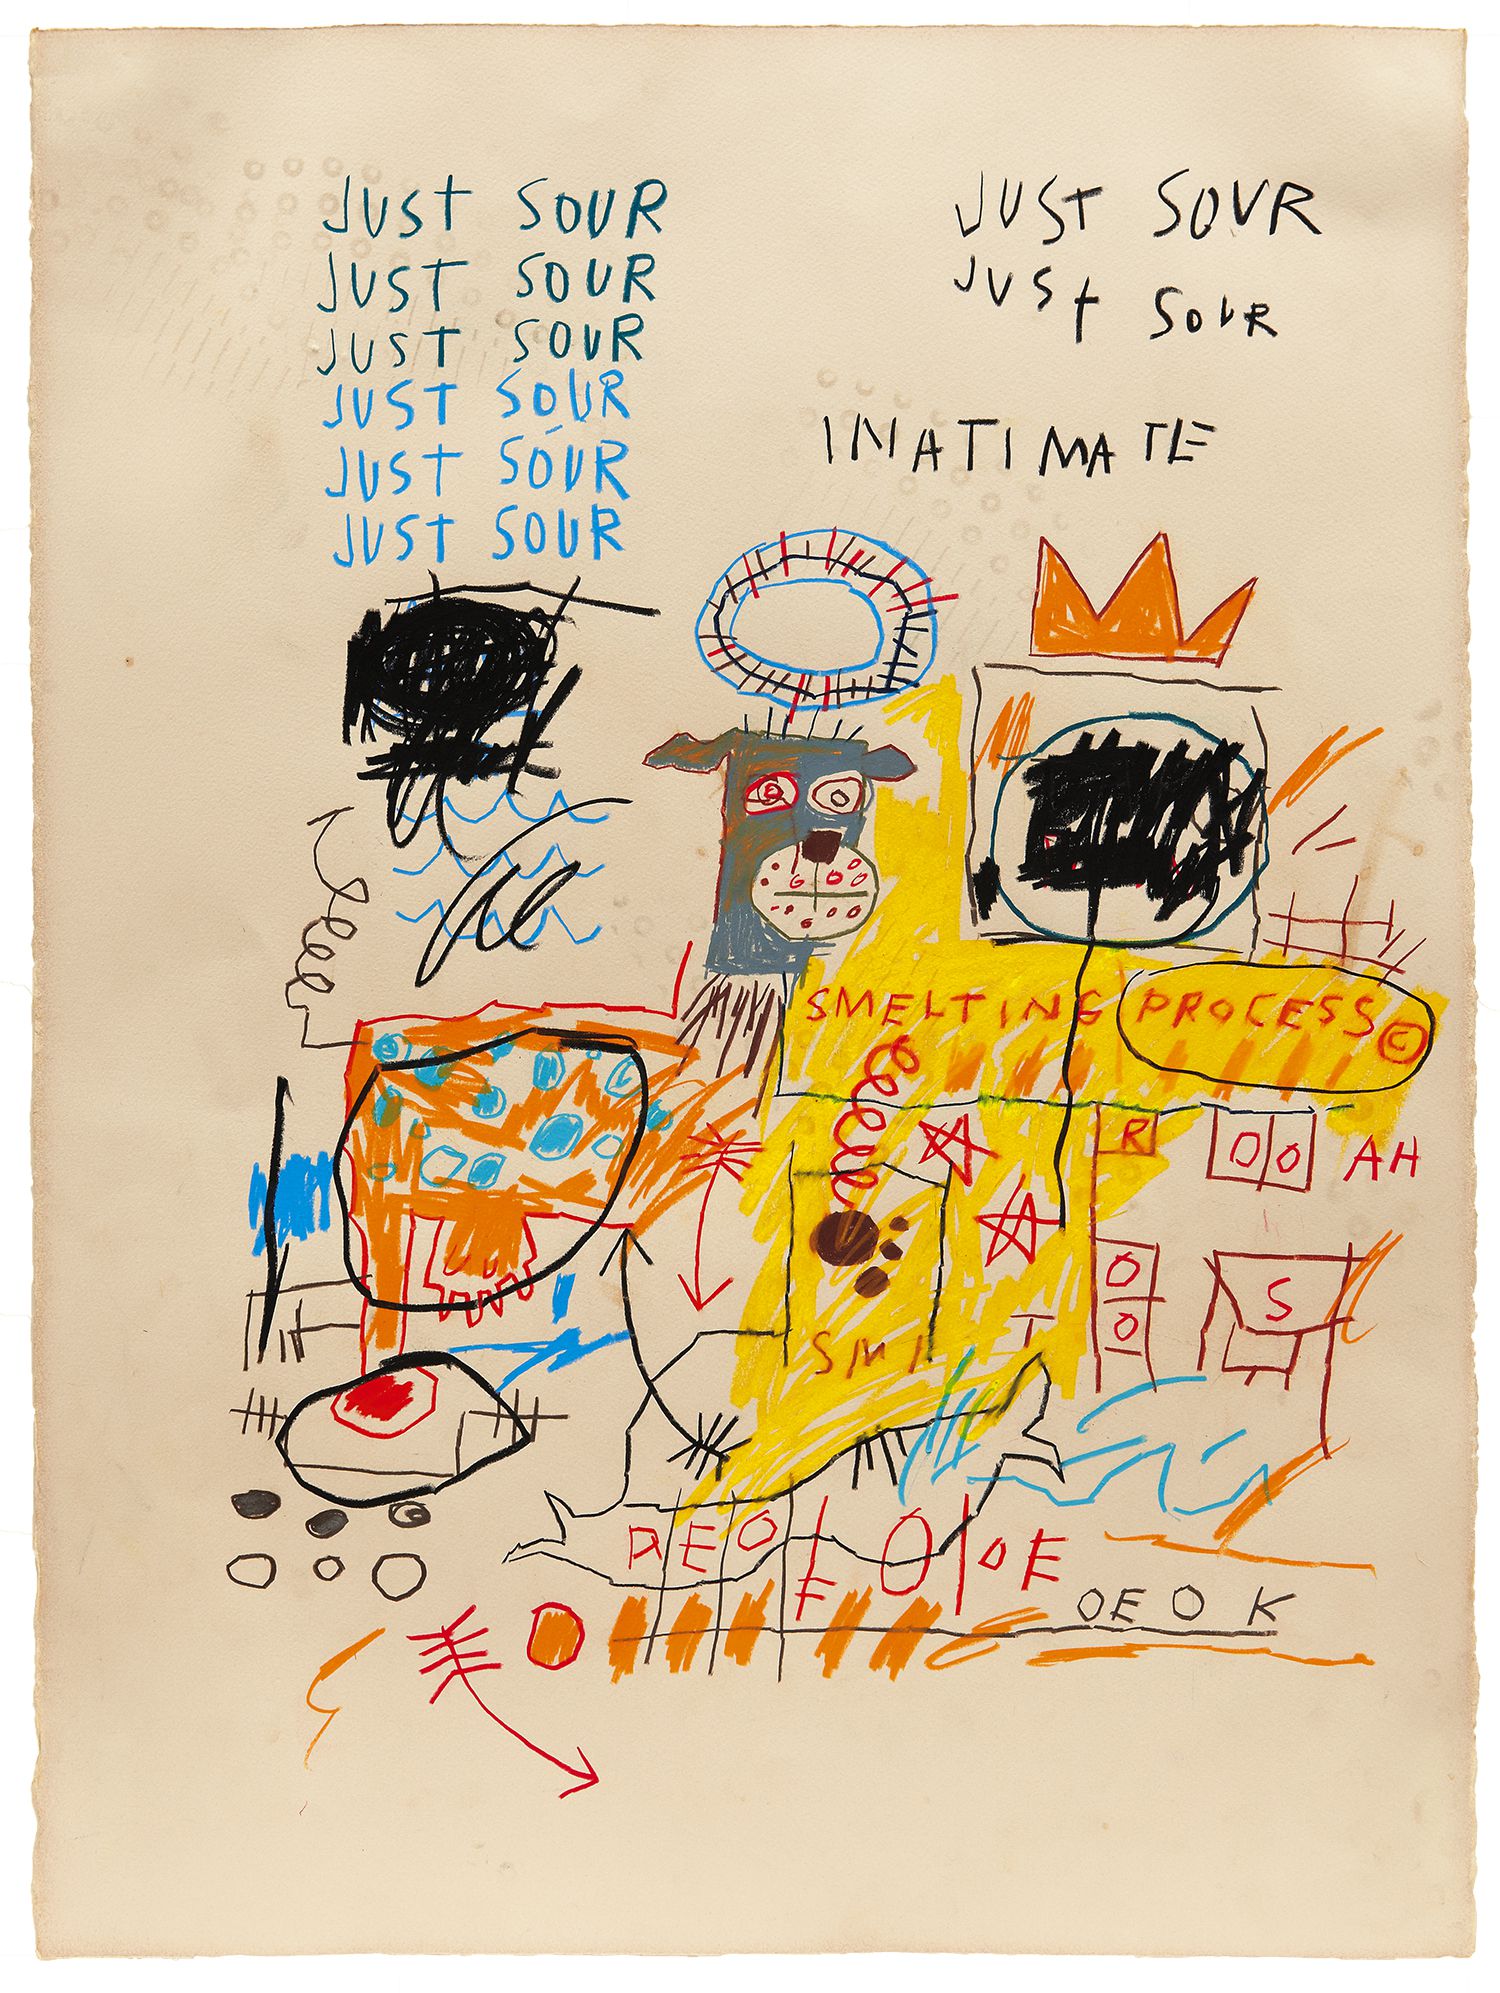 JUST SOUR
JUST SOUR
JUST SOUR
JUST SOUR
JUST SOUR
JUST SOUR
JUST SOUR
JUST SOUR
INATIMATE
SMELTING PROCESS©
R OO AH
O
O
S
SMI T
OEOK